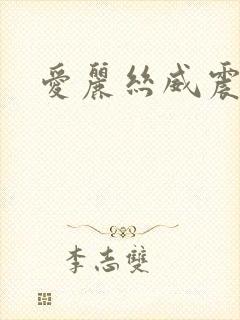 愛麗絲威震
李志雙